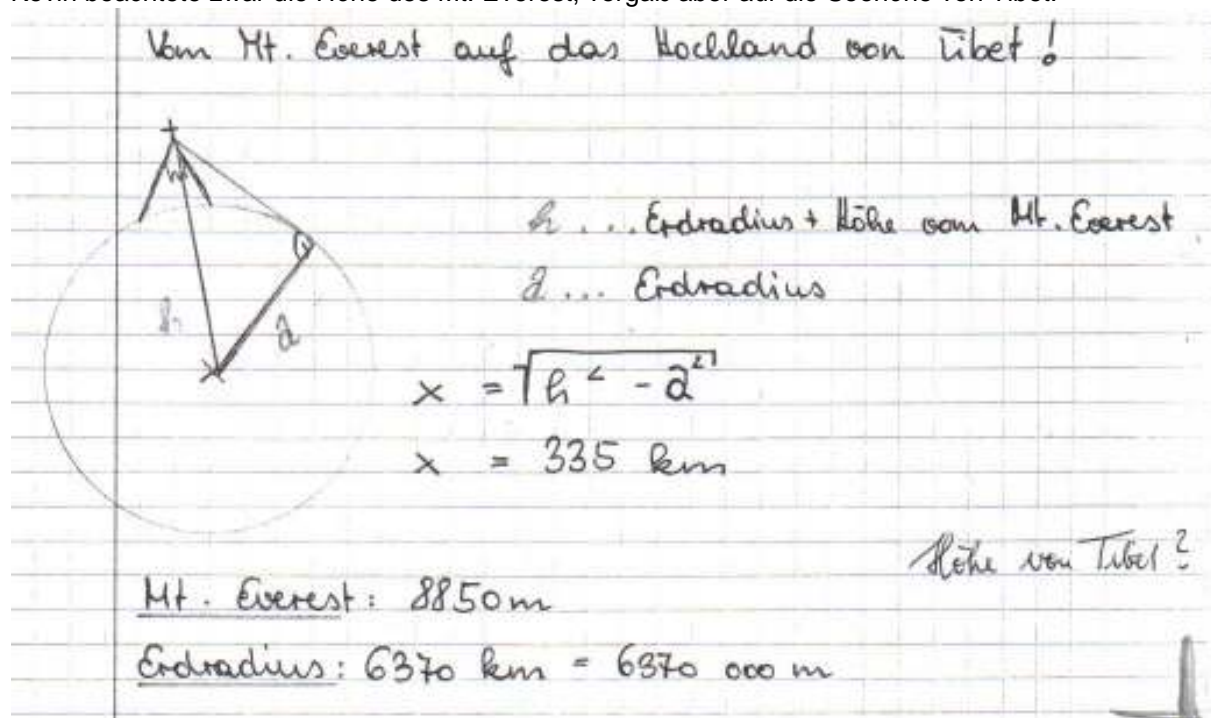 Vom Mt. Everest auf das Hochland von Tibet!
h
h ... Erdradius + Höhe vom Mt. Everest
a ... Erdradius
h
a
x = √h² - a²
x = 335 km
Höhe von Tibet?
Mt. Everest: 8850m
Erdradius: 6370 km = 6370 000 m